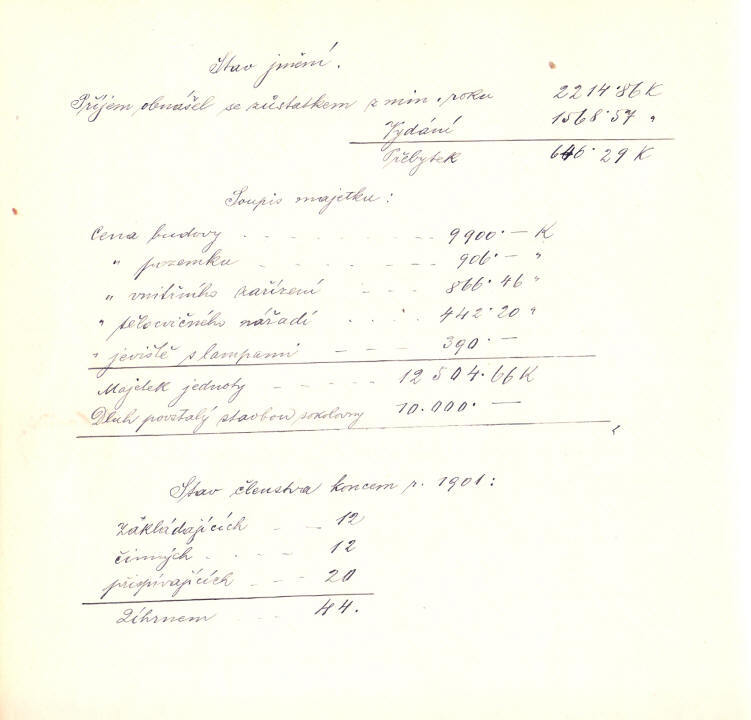 Stav jmění.
Příjem obnášel se zůstatkem z min. roku 2214·86 K
Vydání 1568·57 "
Přebytek 646·29 K
Soupis majetku:
Cena budovy . - - - - - 9900·— K
" pozemku - - - - - 906·— "
" vnitřního zařízení - - - 866·46 "
" tělocvičného nářadí . . . 442·20 "
" jeviště s lampami - - - 390·—
Majetek jednoty - - - - - 12504·66 K
Dluh povstalý stavbou sokolovny 10.000·—
Stav členstva koncem r. 1901:
Zakládajících - - 12
činných - . - - 12
přispívajících - - - 20
Úhrnem - - - 44.